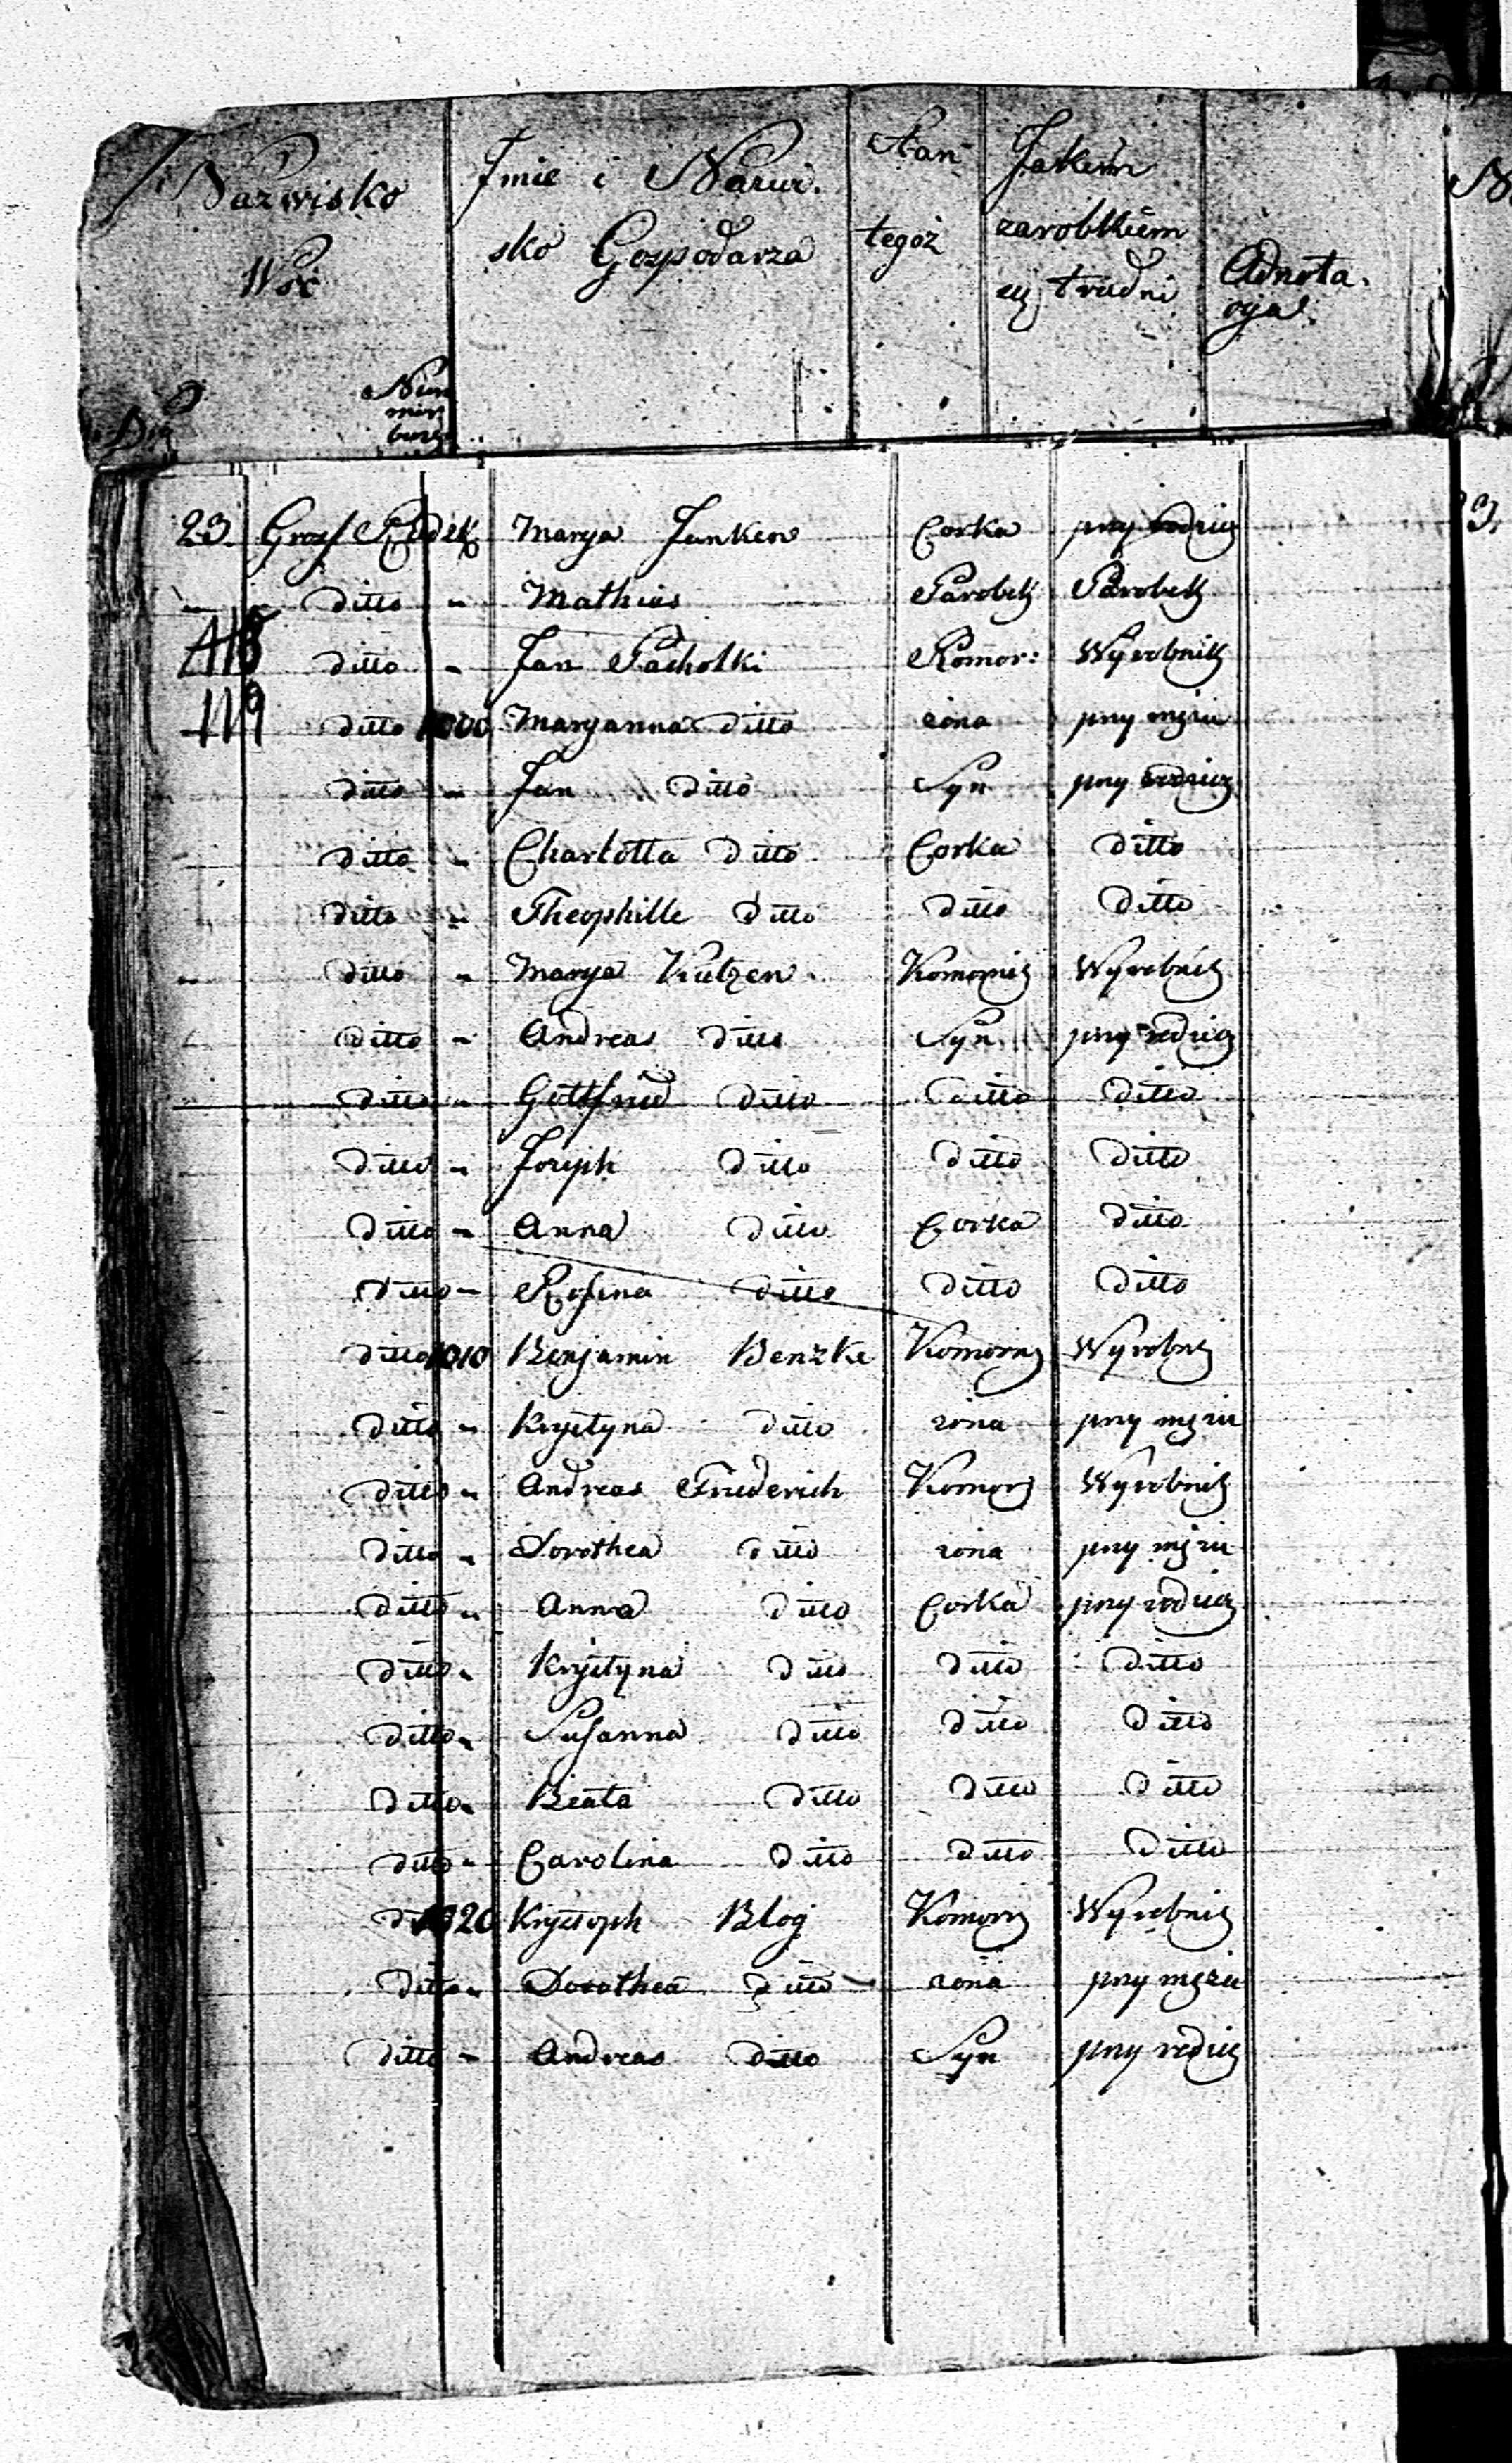 Nazwisko Wsi
Imie i Nazwi.
sko Gospodarza
Stan
tegoż
Jakiem
zarobkiem
się trudni
Adnota.
cya
23. Marya Janken Corka przy rodzic
ditto " Mathias Parobek Parobek
118 ditto " Jan Pacholki Komor: Wyrobnik
119 ditto 1000 Maryanna ditto żona przy mężu
ditto " Jan ditto Syn przy rodzic
ditto " Charlotta ditto Corka ditto
ditto " Theophille ditto ditto ditto
ditto " Marya Kutzen Komornik Wyrobnik
ditto " Andreas ditto Syn przy rodzic
ditto " Gottfried ditto ditto ditto
ditto " Joseph ditto ditto ditto
ditto " Anna ditto Corka ditto
ditto " Rosina ditto ditto ditto
ditto 1010 Benjamin Benzke Komorn Wyrobn
ditto " Krystyna ditto żona przy mężu
ditto " Andreas Friederich Komor Wyrobnik
ditto " Dorothea ditto żona przy mężu
ditto " Anna ditto Corka przy rodzic
ditto " Krystyna ditto ditto ditto
ditto " Susanna ditto ditto ditto
ditto " Beata ditto ditto ditto
ditto " Carolina ditto ditto ditto
1020 Krysztoph Blog Komorn Wyrobnik
ditto " Dorothea ditto żona przy mężu
ditto " Andreas ditto Syn przy rodzic